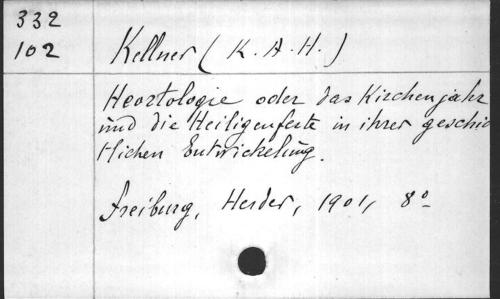 332
102 Kellner (K. A. H.)
Heortologie oder das Kirchenjahr
und die Heiligenfeste in ihrer geschic
htlichen Entwickelung.
Freiburg, Herder, 1901, 8°